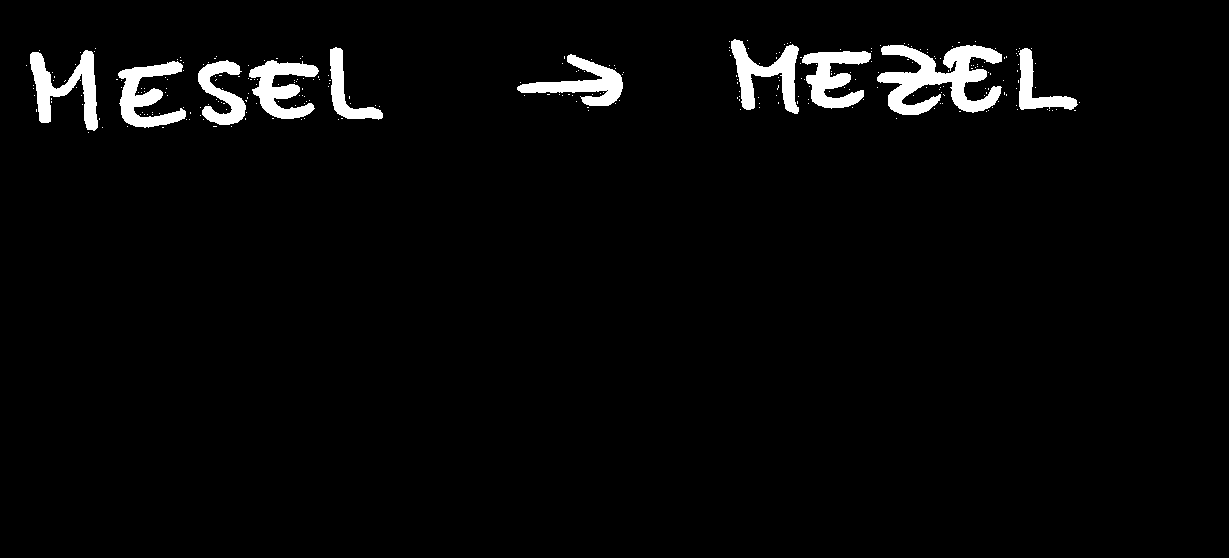 MESEL → MEZEL